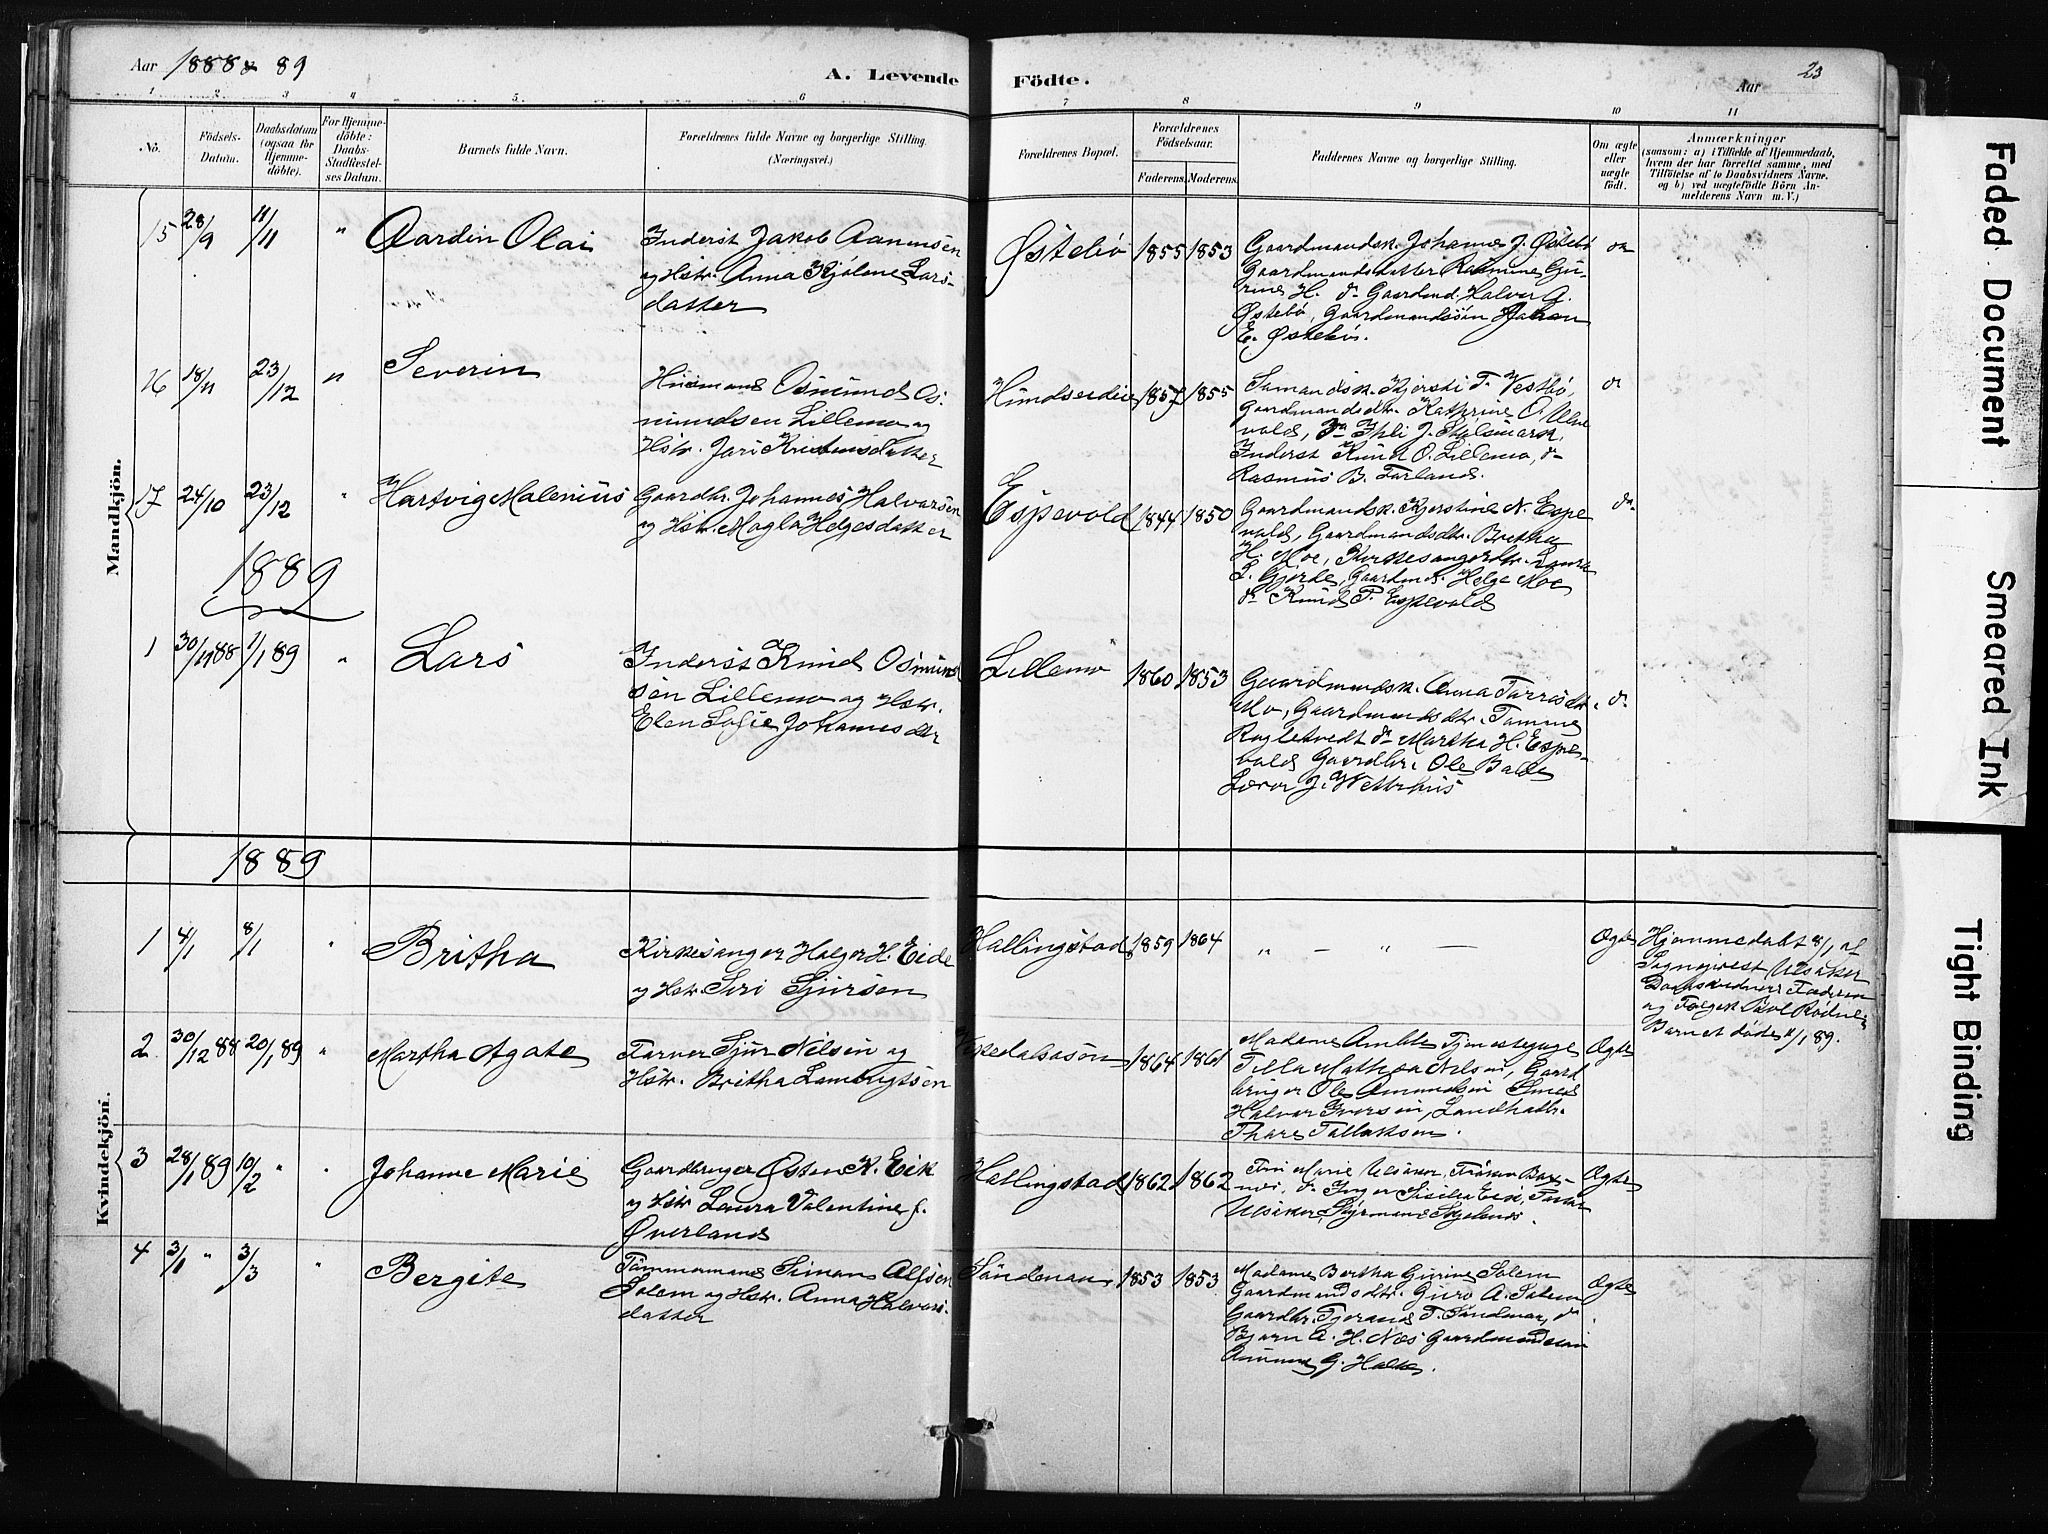 Aar 1888 & 89
A. Levende
Födte.
Aar
23
1 2 3 4 5 6 7 8 9 10 11
No.
Födsels-
Datum.
Daabsdatum
(ogsaa for
Hjemme-
döbte).
For Hjemme-
döbte:
Daabs-
Stadfæstel-
ses Datum.
Barnets fulde Navn.
Forældrenes fulde Navne og borgerlige Stilling.
(Næringsvei.)
Forældrenes Bopæl.
Forældrenes
Födselsaar.
Faderens. Moderens.
Faddernes Navne og borgerlige Stilling.
Om ægte
eller
uægte
födt.
Anmærkninger
(saasom: a) i Tilfælde af Hjemmedaab,
hvem der har forrettet samme, med
Tilföielse af to Daabsvidners Navne.
og b) ved uægtefödte Börn An-
melderens Navn m. V.)
Mandkjön.
15 28/9 11/11 " Aardin Olai
Inderst Jakob
og Hstr. Anna Kjölene Lars-
datter
Østebö 1855 1853
Gaardmandsk. Johanne J. Østebö
Gaardmandsdatter Rasmine Gju-
rine H. do Gaardmd. Halvor A.
Østebö, Gaardmandssön Johan
E. Østebö.
16 18/11 23/12 " Severin
Husmand Osmund Os-
mundsen Lillemo og
Hstr. Jori Kristensdatter
1857 1855
Kjersti T. Vestbö,
Gaardmandsdtr. Kathrine O.
vold,
Inderst Knud O. Lillemo, do
Rasmus B. Farland.
17 24/10 23/12 " Hartvig Malenius
Gaardbr. Johannes Halvorsen
og Hstr. Magla Helgesdatter
Espevold 1844 1850
Gaardmandsk. Kjerstine N. Espe
vold, Gaardmandsdtr. Britha
H. Moe, Kirkesangerdtr. Laura
L. Gjerde, Gaardmd. Helge Moe
do Knud P. Espevold
do
1889
1 30/11 88 1/1 89 " Lars
Inderst Knud Osmund
sen Lillemo og Hstr.
Elen Sofie Johannesdtr
Lillemo 1860 1853
Gaardmandsk. Anna
Mo, Gaardmandsdtr. Tomine
do Martha H. Espe-
vold Gaardbr. Ole
Lærer J. Vestrhus
do
1889
Kvindekjön.
1 4/1 8/1 " Britha
Kirkesanger Holger H. Eide
og Hstr. Siri Sjursen
Hallingstad 1859 1864
" — " —
Ægte
Hjemmedøbt 8/1 af
Sogneprest Ulsaker
Daabsvidner: Faderen
og
Barnet døde 11/1 89.
2 30/12 88 20/1 89 " Martha Agate
Farver Sjur Nilsen og
Hstr. Britha Lambrigtsen
1864 1861
Madame Amble Tjenestepige
Tilla Mathea Nilsen, Gaard
bruger Ole Amundsen Smed
Halvor Iversen, Landhadlr.
Thore Tallaksen.
Ægte
3 28/1 89 10/2 " " Johanne Marie
Gaardbruger Østen K. Eik
og Hstr. Laura Valentine f.
Øverland
Hallingstad 1862 1862
Fru Marie Ulsaker, Fröken
do Inger Sisilia Eik,
Ulsaker, Styrmand
Ægte
4 3/1 " 3/3 " Bergite
Tömmermand Simon Alfsen
Solem og Hstr. Anna Halvors-
datter
Söndenaa 1853 1853
Madame Bertha Gurine Solem
Gaardmandsdtr. Guro A.
Gaardbr. Tjerand T. Söndenaa, do
Bjørn A. H. Næs Gaardmandssön
G.
Ægte
Faded Document
Smeared Ink
Tight Binding